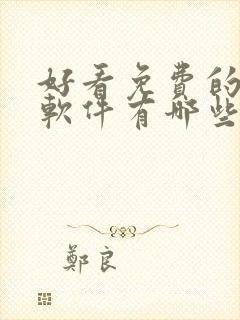 好看免費的
軟件有哪些
鄭良